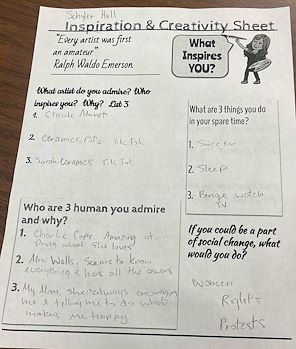 Schyler Hall
Inspiration & Creativity Sheet
"Every artist was first
an amateur"
Ralph Waldo Emerson
What
Inspires
YOU?
What artist do you admire? Who
inspires you? Why? List 3
1. Claude Monet
2. Ceramics, Tik Tok
3. Sarah Ceramics Tik Tok
What are 3 things you do
in your spare time?
1. Soccer
2. Sleep
3. Binge watch
TV
Who are 3 human you admire
and why?
1. Charlie Cope, Amazing at
Doing what she loves
2. Mrs. Walls, Seems to know
everything & has all the
3. My Mom, she always encouraging
me & telling me to do what
makes me happy
If you could be a part
of social change, what
would you do?
Women
Rights
Protests